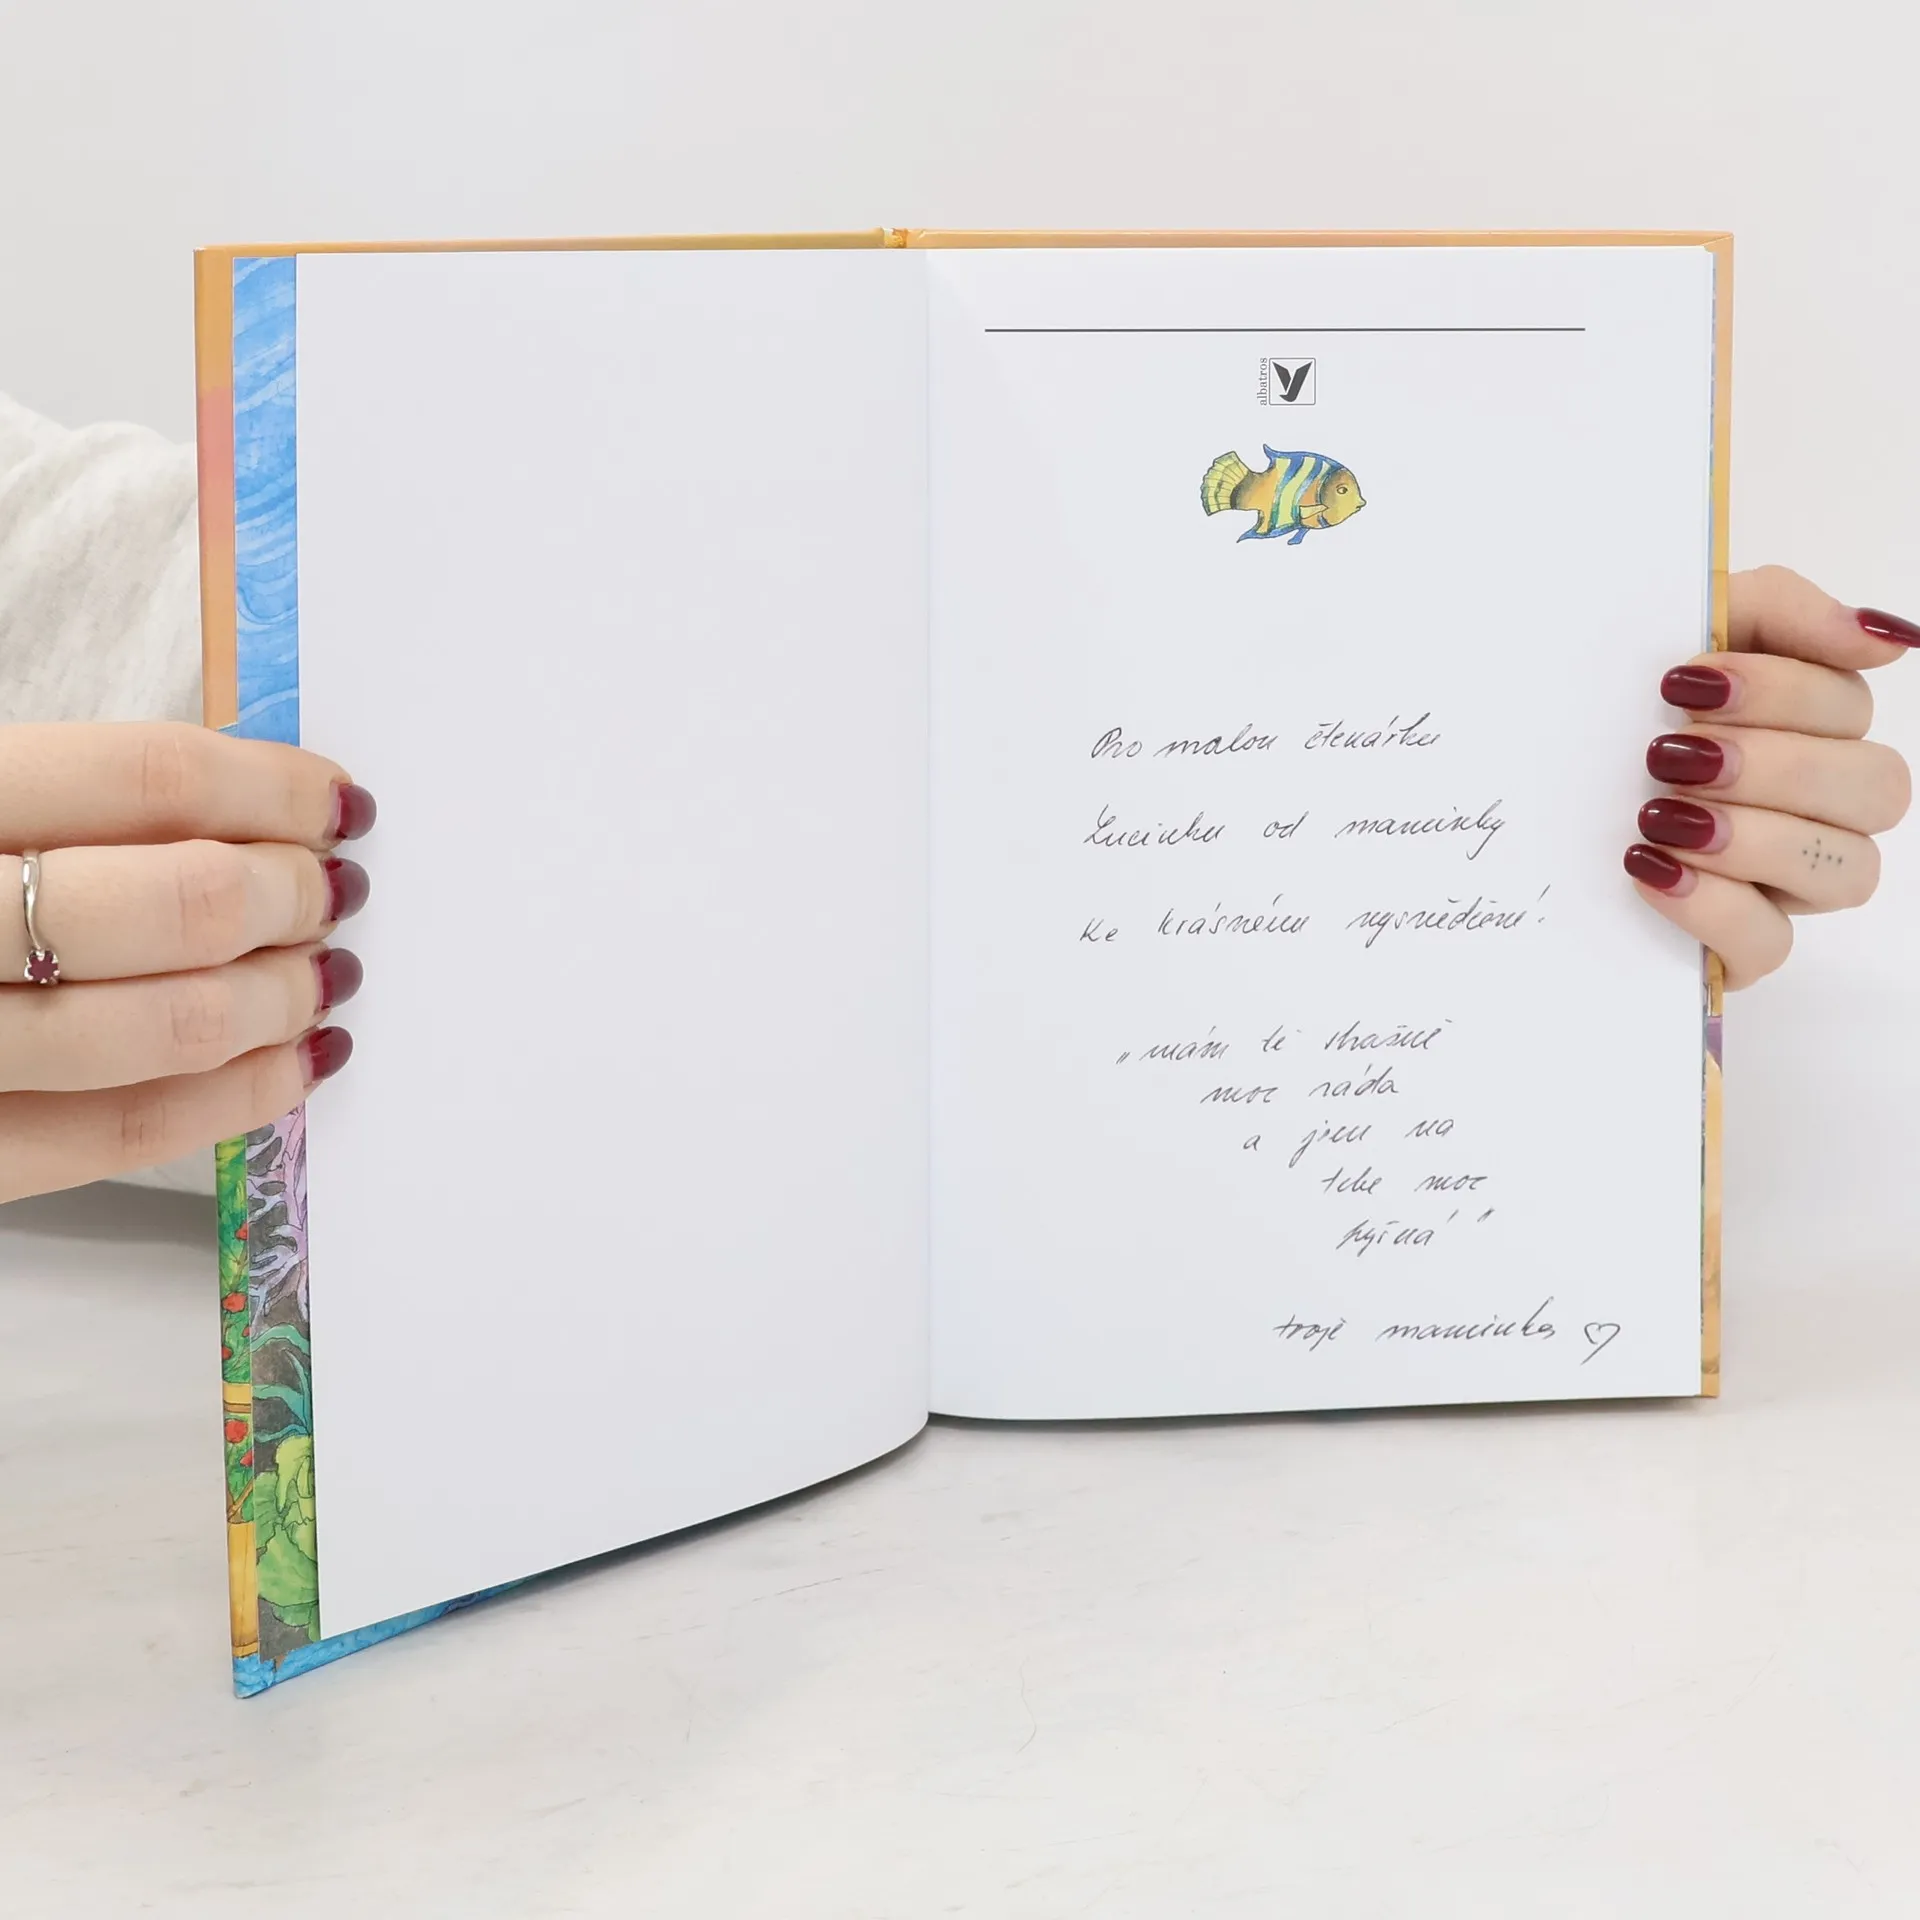 albatros
Pro malou čtenářku
Lucinku od maminky
Ke krásnému vysvědčení!
„mám tě strašně
moc ráda
a jsem na
tebe moc
pyšná"
tvoje maminka ♡